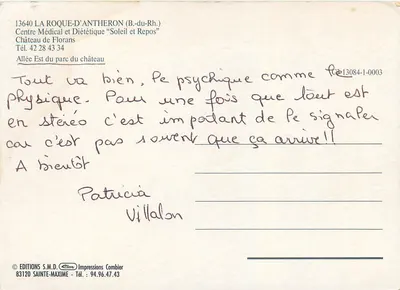 13640 LA ROQUE-D'ANTHERON (B.-du-Rh.)
Centre Médical et Diététique "Soleil et Repos"
Château de Florans
Tél. 42 28 43 34
Allée Est du parc du château
13084-1-0003
Tout va bien, le psychique comme le
physique. Pour une fois que tout est
en stéréo c'est important de le signaler
car c'est pas souvent que ça arrive!!
A bientôt
Patricia
Villalon
© EDITIONS S.M.D. Impressions Combier
83120 SAINTE-MAXIME - Tél. : 94.96.47.43